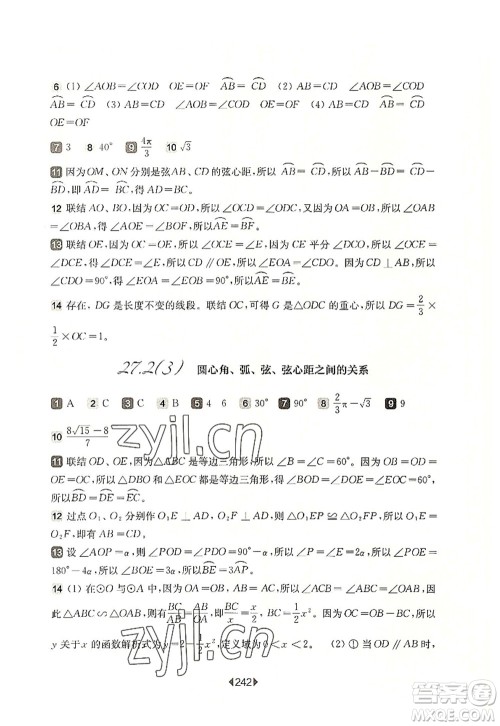 6 (1) ∠AOB=∠COD OE=OF ⌒AB=⌒CD (2) AB=CD ∠AOB=∠COD
⌒AB=⌒CD (3) AB=CD OE=OF ∠AOB=∠COD (4) AB=CD ∠AOB=∠COD
OE=OF
7 3 8 40° 9 4π/3 10 √3
11 因为OM、ON分别是弦AB、CD的弦心距,所以⌒AB=⌒CD,所以⌒AB−⌒BD=⌒CD
−⌒BD,即⌒AD=⌒BC,得AD=BC.
12 联结AO、BO,因为OA=OB,所以∠OAB=∠OBA,因为OE∥AB,所以∠OAB
=∠AOE,∠OBA=∠BOF,得∠AOE=∠BOF,所以⌒AE=⌒BF.
13 联结OE,因为OC=OE,所以∠OCE=∠OEC,因为∠OCE=∠ECD,所以∠OEC
=∠DCE,所以CD∥OE,因为CD⊥AB,所以∠CDO=90°,得∠AOE=∠BOE
=∠CDO=90°,所以⌒AE=⌒BE.
14 存在,DG是长度不变的线段。联结OC,可得G是△ODC的重心,所以DG=2/3×
1/2×OC=1.
27.2(3) 圆心角、弧、弦、弦心距之间的关系
1 A 2 C 3 C 4 B 5 4 6 30° 7 90° 8 2/3π−√3 9 9
10 (8√15−8)/7
11 联结OD、OE,因为△ABC是等边三角形,所以∠B=∠C=60°,所以∠BOD=∠DOE
=∠EOC=60°,所以⌒BD=⌒DE=⌒EC.
12 过点O₁、O₂分别作O₁E⊥AD,O₂F⊥AD,可得△O₁PE≌△O₂PF,所以O₁E
=O₂F,即AB=CD.
13 设∠AOP=α,则∠OPD=90°−α,所以∠ODP=90°−α,所以∠POD=
180°−4α,所以∠BOE=3α,所以⌒BE=3⌒AP.
14 (1) 在⊙O与⊙A中,因为OA=OB,AB=AC,所以∠ABC=∠ACB=∠OAB,因
此△ABC∽△OAB,所以BC/AB=AB/OB,即BC/x=x/2,所以BC=1/2x²,所以
y关于x的函数解析式为y=2−1/2x²,定义域为0<x<2. (2) ①当OD∥AB时,
◀242▶